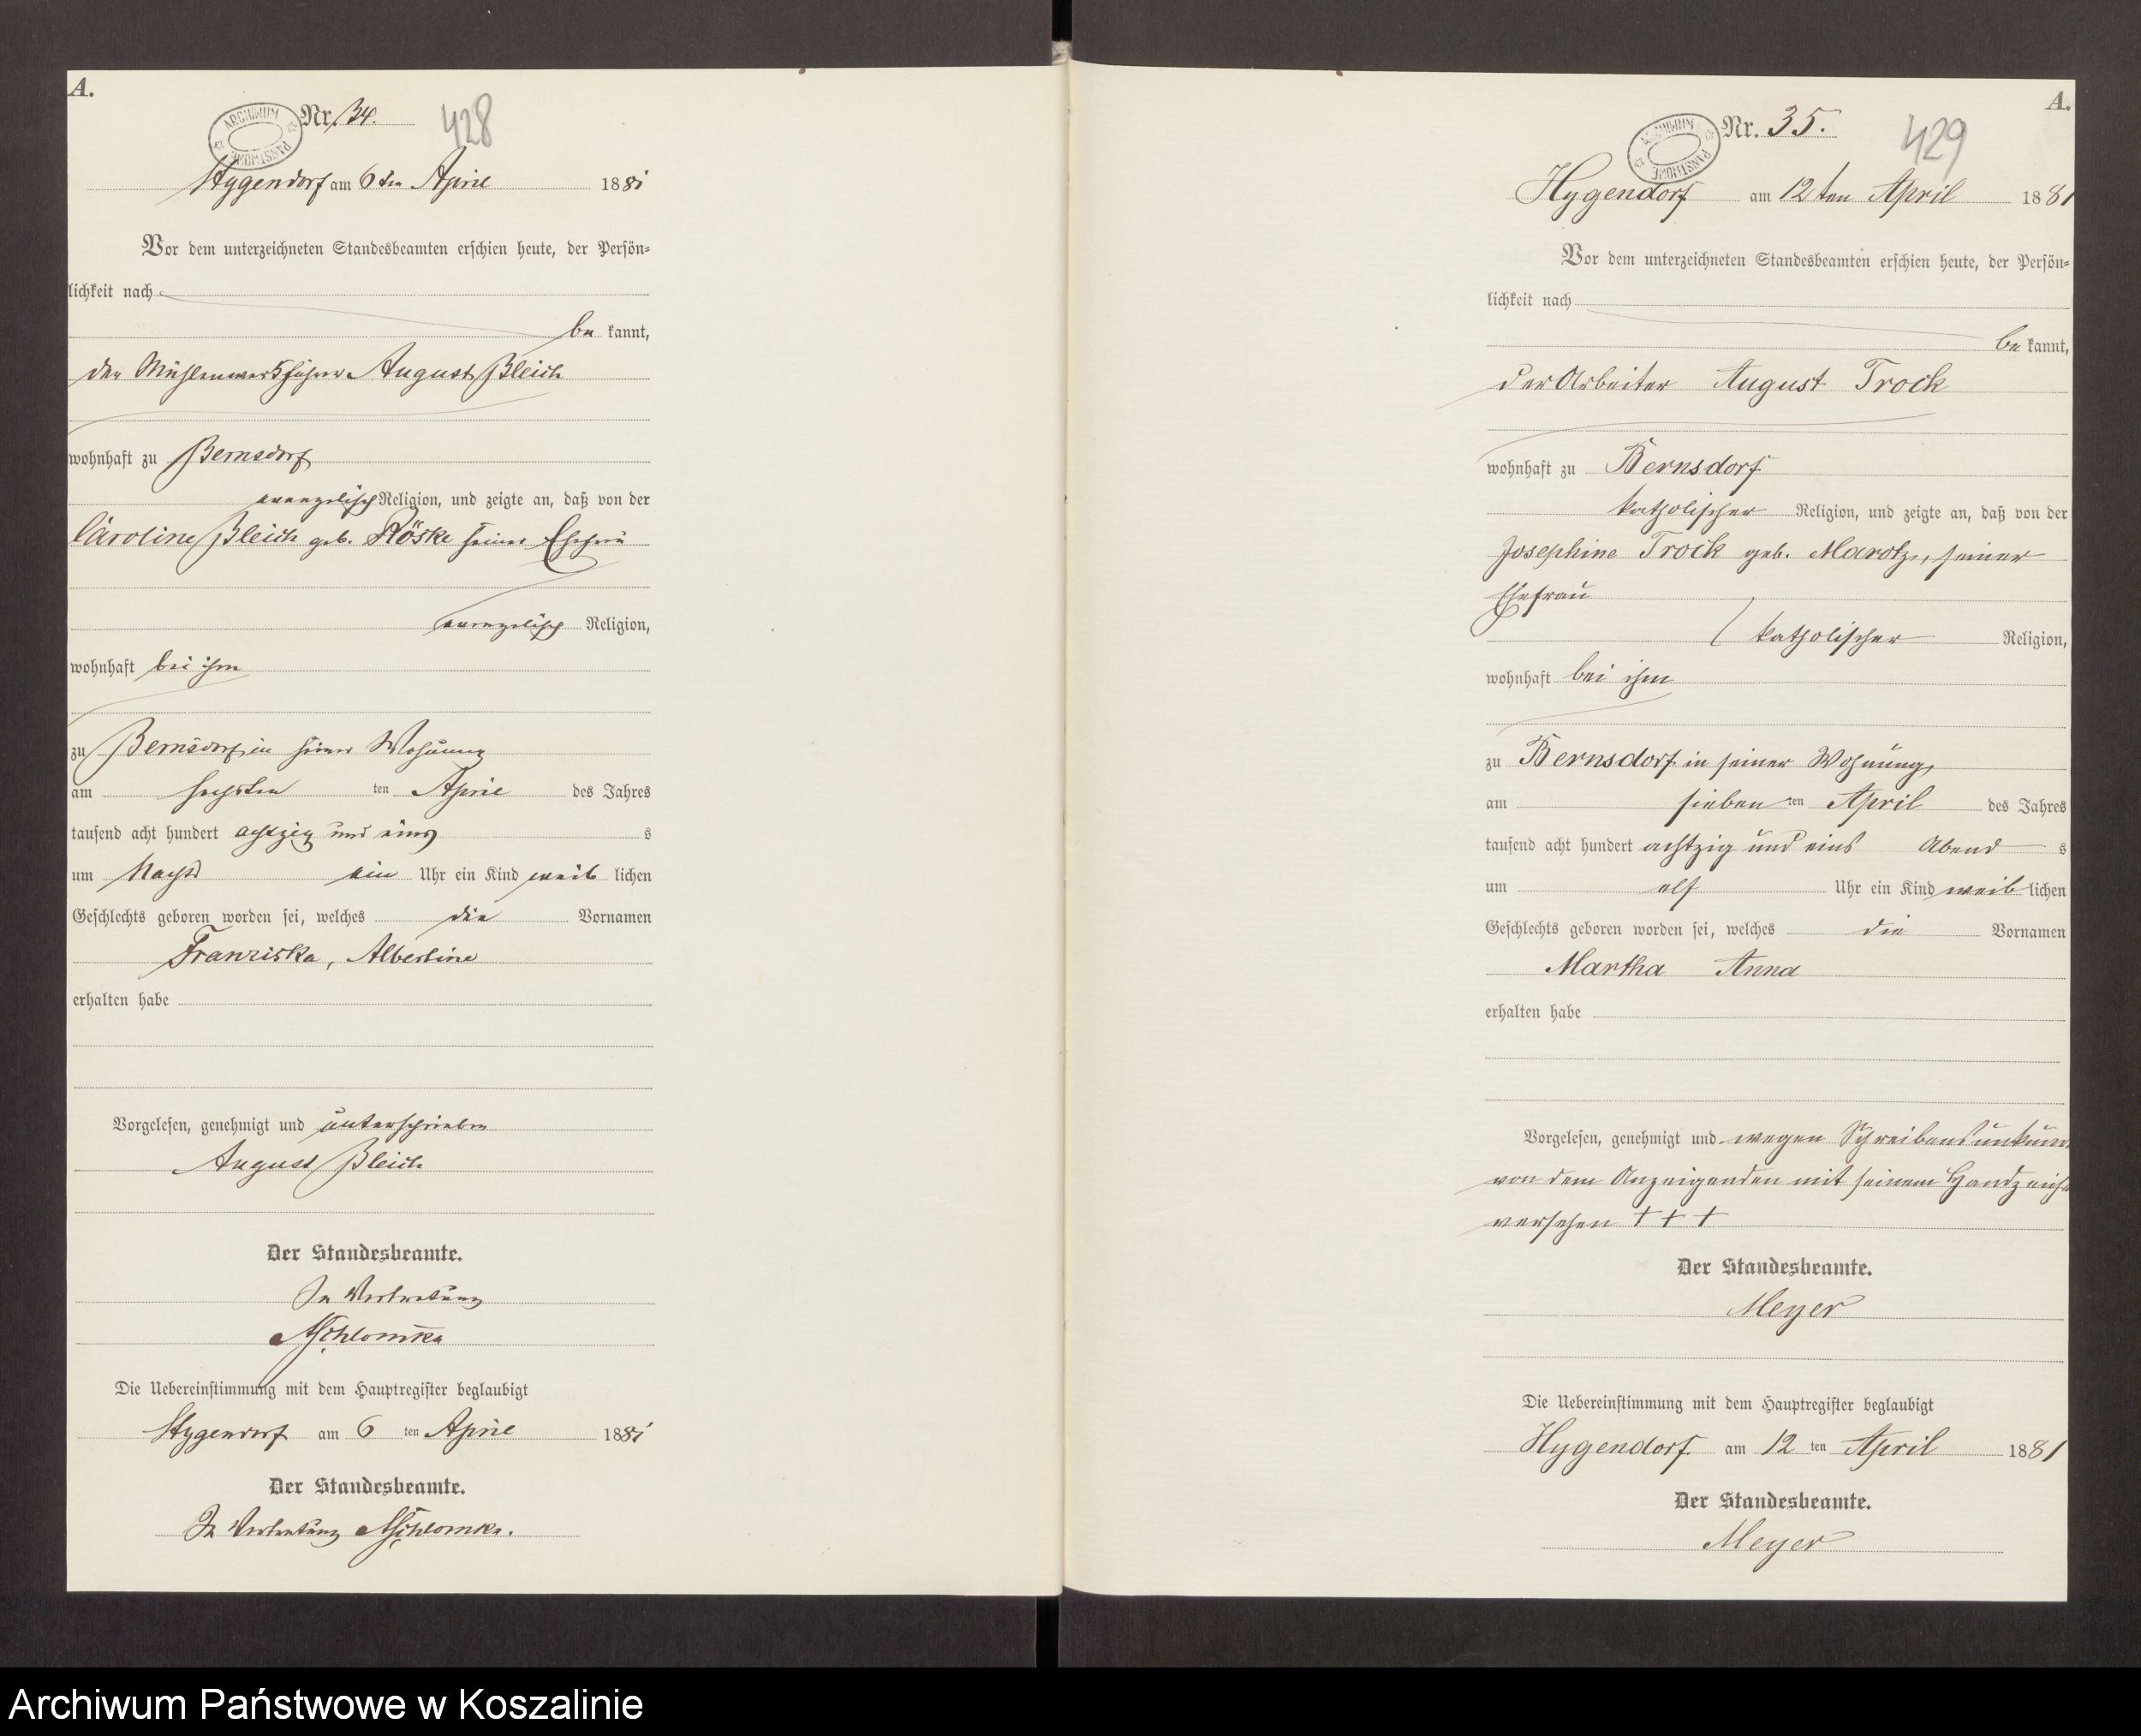 A.
Nr. 34.
428
ARCHIWUM PAŃSTWOWE
Hygendorf am 6ten April 1881
Vor dem unterzeichneten Standesbeamten erschien heute, der Persön-
lichkeit nach
be kannt,
der Mühlenwerkführer August Bleich
wohnhaft zu Bernsdorf
evangelisch Religion, und zeigte an, daß von der
Caroline Bleich geb. Röske seiner Ehefrau
evangelisch Religion,
wohnhaft bei ihm
zu Bernsdorf in seiner Wohnung
am sechsten ten April des Jahres
tausend acht hundert achtzig und eins s
um Nachts ein Uhr ein Kind weib lichen
Geschlechts geboren worden sei, welches die Vornamen
Franziska, Albertine
erhalten habe
Vorgelesen, genehmigt und unterschrieben
August Bleich
Der Standesbeamte.
In Vertretung
Die Uebereinstimmung mit dem Hauptregister beglaubigt
Hygendorf am 6 ten April 1881
Der Standesbeamte.
In Vertretung
A.
Nr. 35.
429
ARCHIWUM PAŃSTWOWE
Hygendorf am 12ten April 1881
Vor dem unterzeichneten Standesbeamten erschien heute, der Persön-
lichkeit nach
be kannt,
der Arbeiter August Trock
wohnhaft zu Bernsdorf
katholischer Religion, und zeigte an, daß von der
Josephine Trock geb. Marotz, seiner
Ehefrau
katholischer Religion,
wohnhaft bei ihm
zu Bernsdorf in seiner Wohnung,
am sieben ten April des Jahres
tausend acht hundert achtzig und eins Abend s
um elf Uhr ein Kind weib lichen
Geschlechts geboren worden sei, welches die Vornamen
Martha Anna
erhalten habe
Vorgelesen, genehmigt und wegen Schreibensunkun
von dem Anzeigenden mit seinem Handzeich
versehen + + +
Der Standesbeamte.
Meyer
Die Uebereinstimmung mit dem Hauptregister beglaubigt
Hygendorf am 12 ten April 1881
Der Standesbeamte.
Meyer
Archiwum Państwowe w Koszalinie